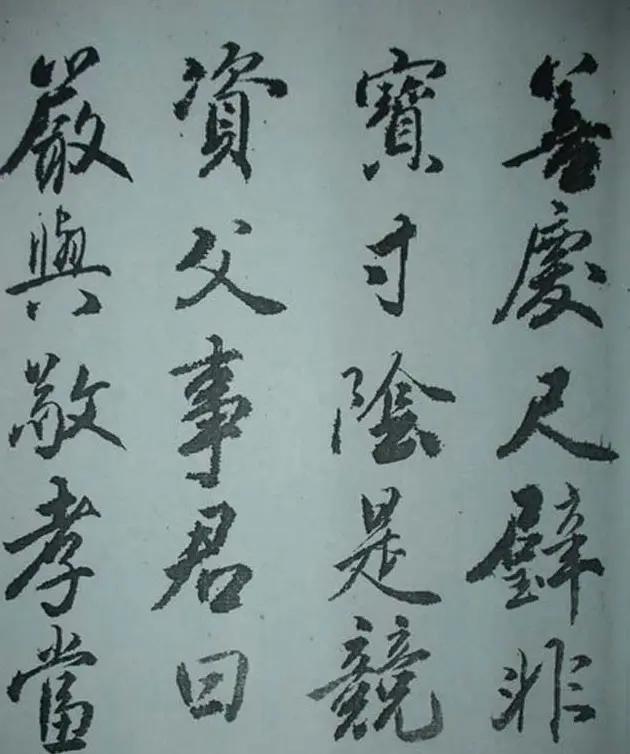 善慶尺璧非
寶寸陰是競
資父事君曰
嚴與敬孝當